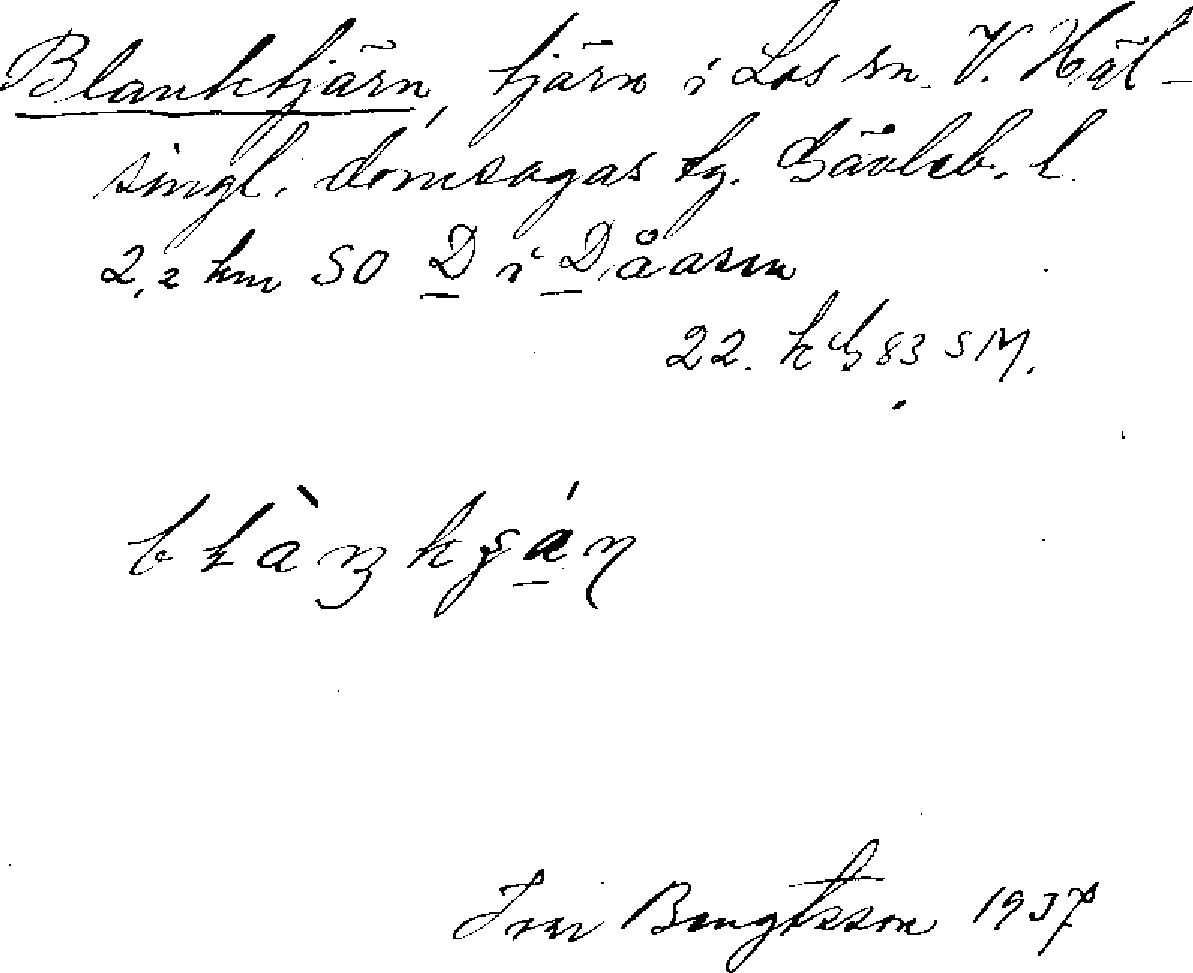 Blanktjärn, tjärn i Los sn. V. Häl-
singl. domsagas tg. Gävleb. l.
2,2 km SO D i Dåasen
22. 83 SM.
Ivar Bengtsson 1937